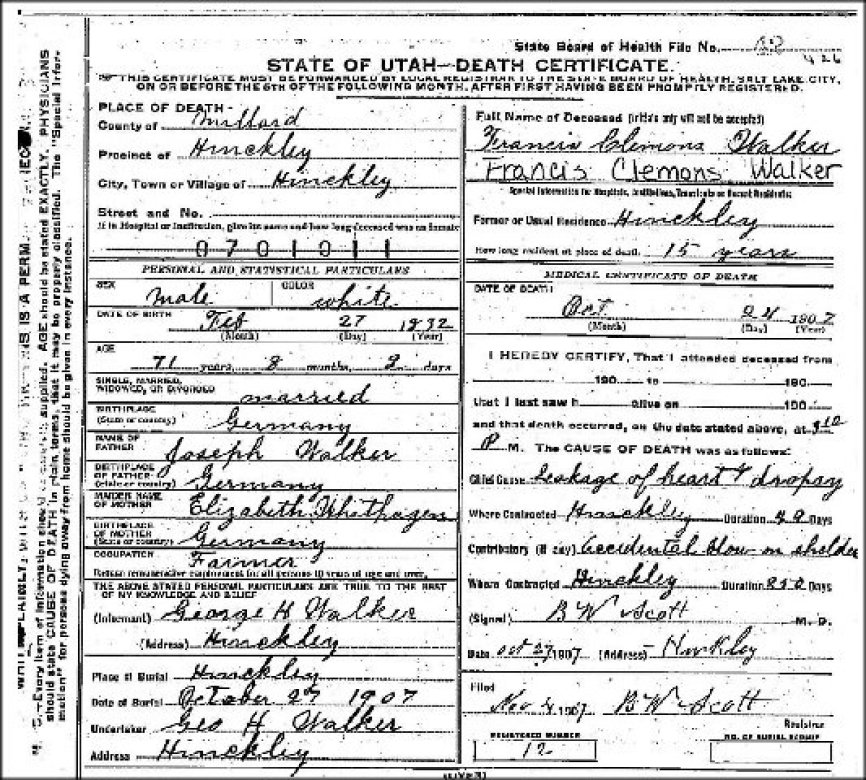 State Board of Health File No.
426
STATE OF UTAH—DEATH CERTIFICATE.
THIS CERTIFICATE MUST BE FORWARDED BY LOCAL REGISTRAR TO THE STATE BOARD OF HEALTH, SALT LAKE CITY,
ON OR BEFORE THE 5TH OF THE FOLLOWING MONTH, AFTER FIRST HAVING BEEN PROMPTLY REGISTERED.
PLACE OF DEATH-
County of Millard
Precinct of Hinckley
City, Town or Village of Hinckley
Street and No.
If in Hospital or Institution, give its name and how long deceased was an inmate
0701011
PERSONAL AND STATISTICAL PARTICULARS
SEX male COLOR white
DATE OF BIRTH Feb 27 1832
(Month) (Day) (Year)
AGE
71 years, 8 months, days
SINGLE, MARRIED,
WIDOWED, OR DIVORCED married
BIRTHPLACE
(State or country) Germany
NAME OF
FATHER Joseph Walker
BIRTHPLACE
OF FATHER
(State or country) Germany
MAIDEN NAME
OF MOTHER Elizabeth
BIRTHPLACE
OF MOTHER
(State or country) Germany
OCCUPATION Farmer
THE ABOVE STATED PERSONAL PARTICULARS ARE TRUE TO THE BEST
OF MY KNOWLEDGE AND BELIEF
(Informant) George H Walker
(Address) Hinckley
Place of Burial Hinckley
Date of Burial October 27 1907
Undertaker Geo H Walker
Address Hinckley
Full Name of Deceased (initials only will not be accepted)
Francis Clemons Walker
Francis Clemons Walker
Special Information for Hospitals, Institutions, Transients or Recent Residents:
Former or Usual Residence Hinckley
How long resident at place of death. 15 years
MEDICAL CERTIFICATE OF DEATH
DATE OF DEATH
Oct 24 1907
(Month) (Day) (Year)
I HEREBY CERTIFY, That I attended deceased from
190 to 190
that I last saw h alive on 190
and that death occurred, on the date stated above, at 310
P M. The CAUSE OF DEATH was as follows:
Chief Cause Leakage of heart & dropsy
Where Contracted Hinckley Duration Days
Contributory (if any) accidental blow on shelder
Where Contracted Hinckley Duration 252 Days
(Signed) B W Scott M. D.
Date Oct 27 1907 (Address) Hinkley
Filed
Nov 4 1907 B W Scott
Registrar
REGISTERED NUMBER
12
NO. OF BURIAL PERMIT
(OVER)